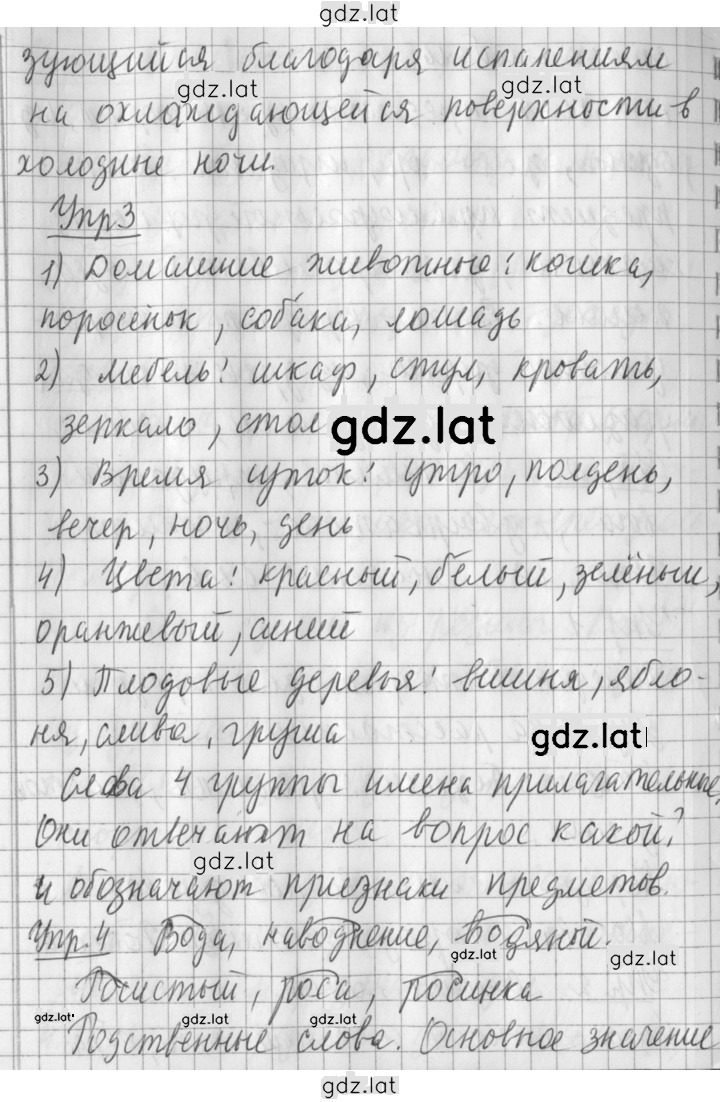 gdz.lat
зующийся благодаря испалениям
gdz.lat gdz.lat
на охлаждающейся поверхности в
холодные ночи.
Упр 3
1) Домашние животные: кошка,
поросёнок, собака, лошадь
2) мебель: шкаф, стул, кровать,
зеркало, стол
gdz.lat
3) Время суток: утро, полдень,
вечер, ночь, день
4) Цвета: красный, белый, зелёный,
оранжевый, синий
5) Плодовые деревья: вишня, ябло-
ня, слива, груша
gdz.lat
Слова 4 группы имена прилагательные,
Они отвечают на вопрос какой?
gdz.lat
и обозначают признаки предметов.
Упр. 4 Вода, наводнение, водяной.
gdz.lat gdz.lat
Росистый, роса, росинка
gdz.lat gdz.lat gdz.lat gdz.lat
Родственные слова. Основное значение
gdz.lat